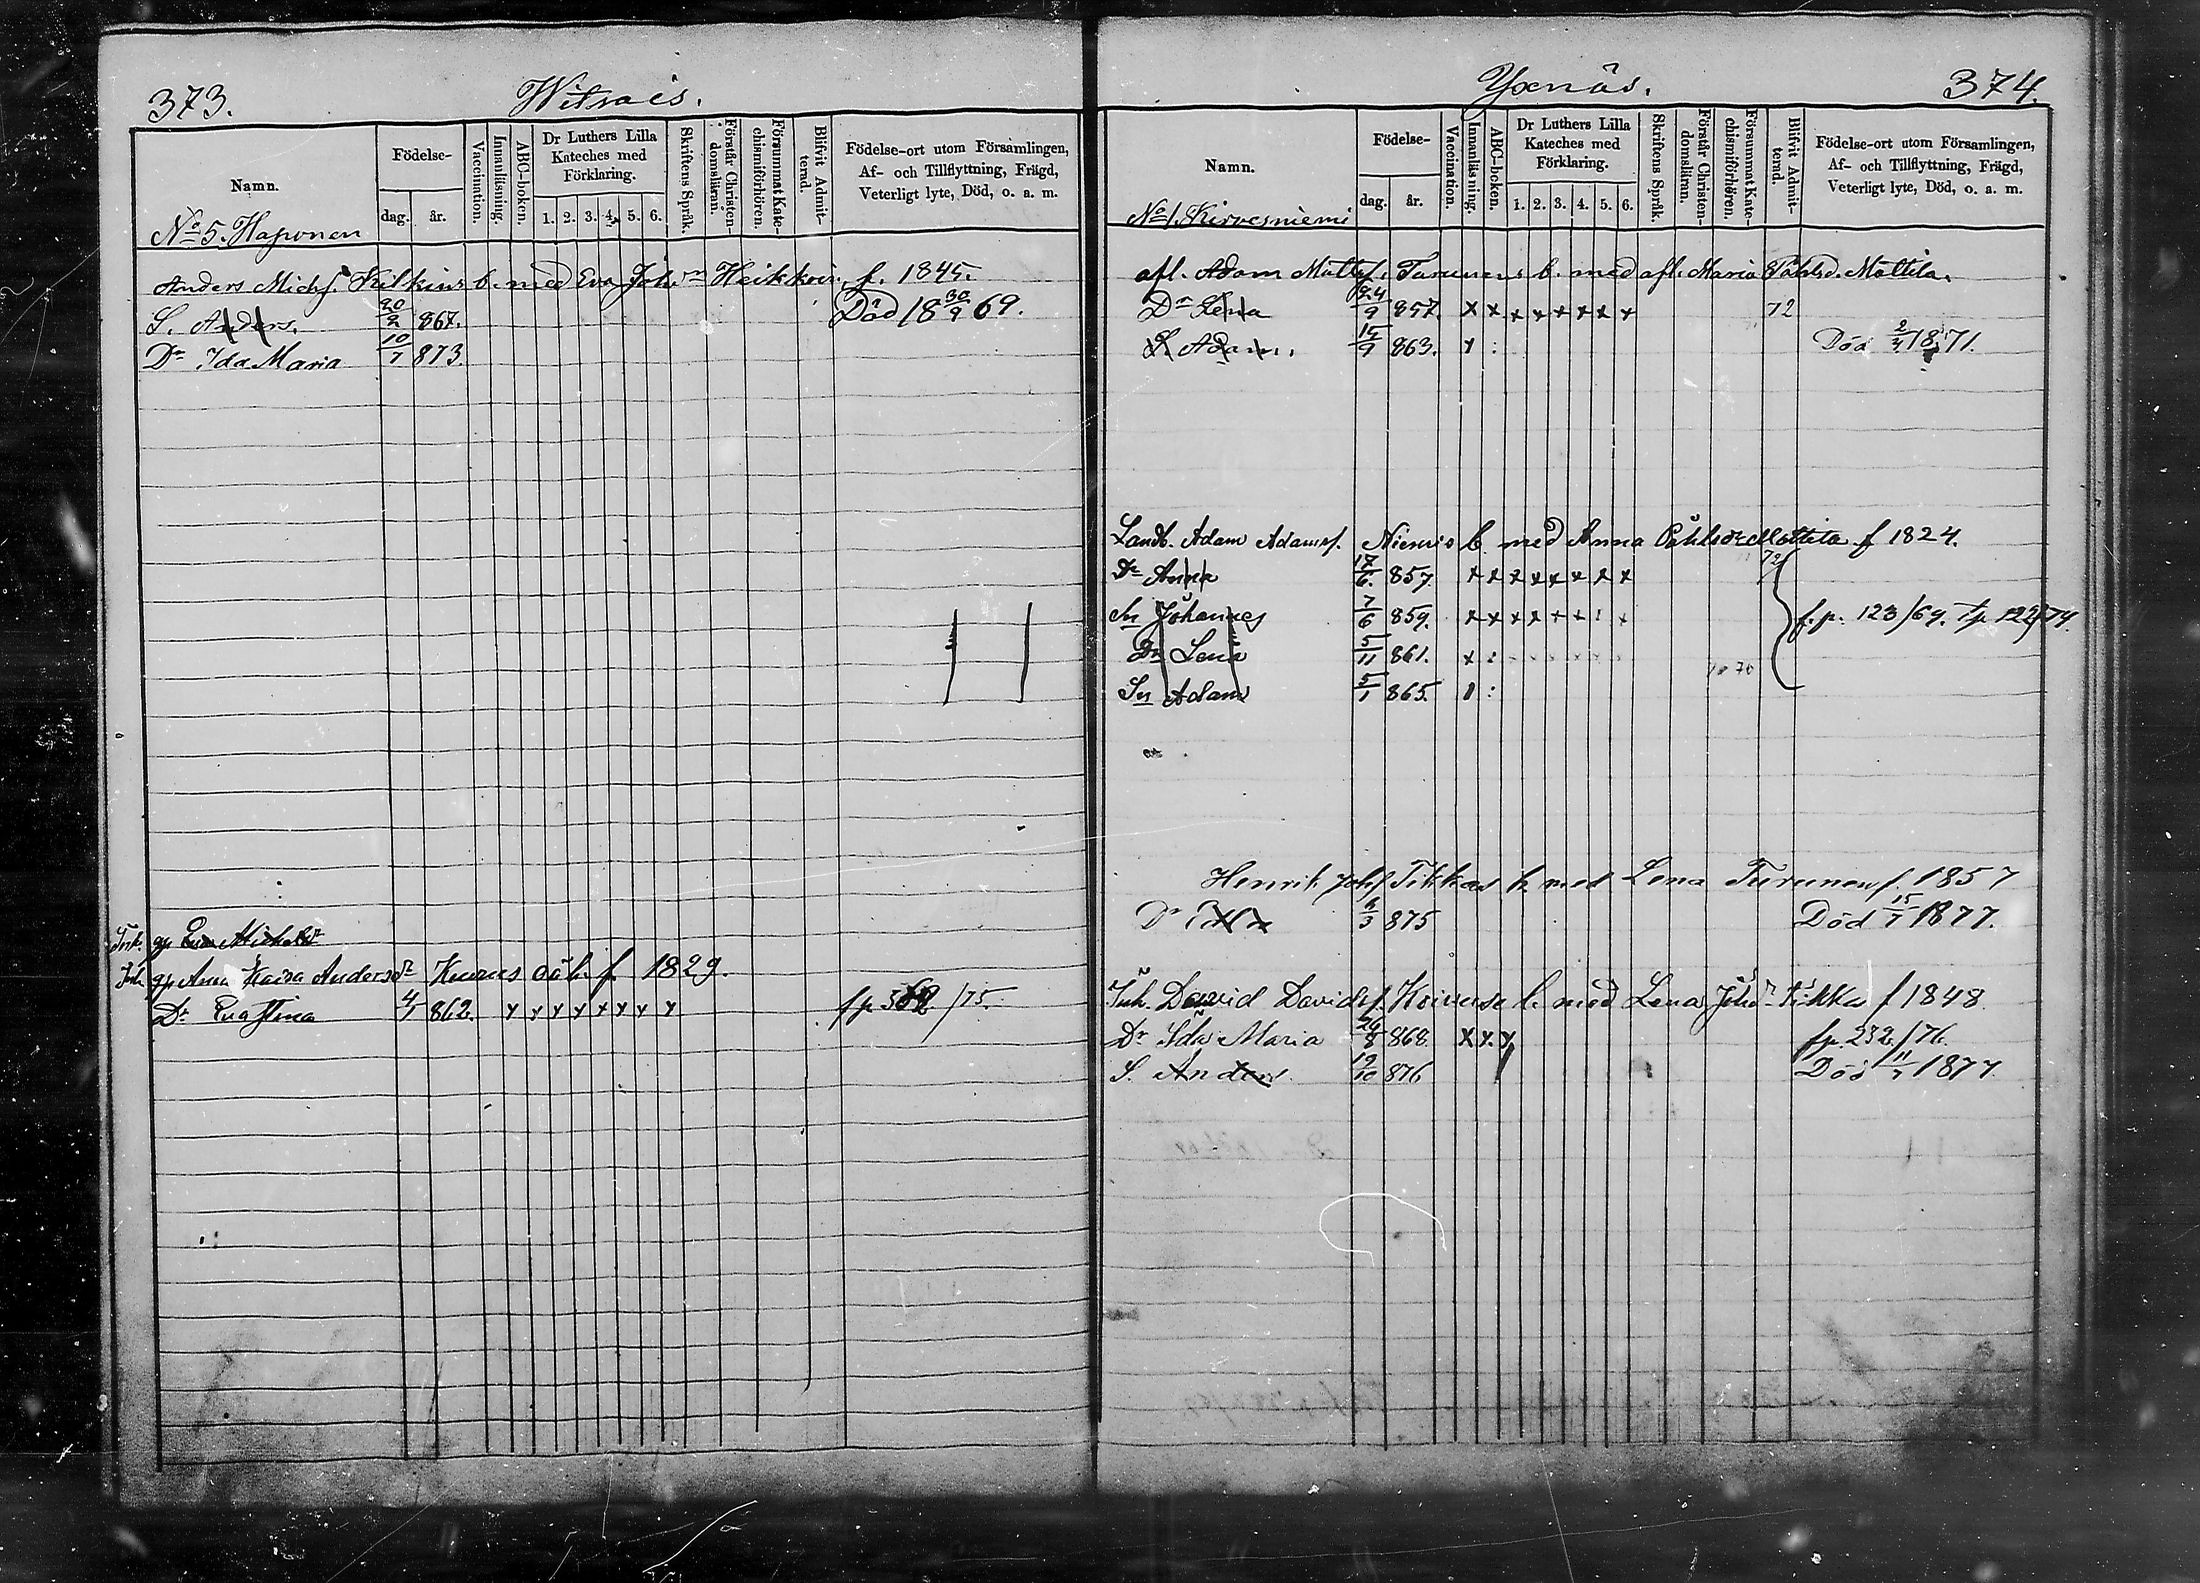 373.
Witsais.
Namn.
Födelse-
dag.
år.
Vaccination.
Innanläsning.
ABC-boken.
Dr Luthers Lilla
Kateches med
Förklaring.
1. 2. 3. 4. 5. 6.
Skriftens Språk.
Förstår Christen-
domsläran.
Försummat Kate-
chismiförhören.
Blifvit Admit-
terad.
Födelse-ort utom Församlingen,
Af- och Tillflyttning, Frägd,
Veterligt lyte, Död, o. a. m.
No 5. Haponen
Anders Michs. Kilkins b. med Eva Joh. Heikkoin. f. 1845.
S. Anders. 20/2 867. Död 18 30/9 69.
Dr Ida Maria 10/7 873.
gp Eva Michelsdr
Inh. gp Anna Kaisa Andersdr f. 1829.
Dr Eva Stina 4/5 862. x x x x x x x x fp 362/75.
Yxnäs.
374.
Namn.
Födelse-
dag.
år.
Vaccination.
Innanläsning.
ABC-boken.
Dr Luthers Lilla
Kateches med
Förklaring.
1. 2. 3. 4. 5. 6.
Skriftens Språk.
Förstår Christen-
domsläran.
Försummat Kate-
chismiförhören.
Blifvit Admit-
terad.
Födelse-ort utom Församlingen,
Af- och Tillflyttning, Frägd,
Veterligt lyte, Död, o. a. m.
No 1. Kirvesniemi
afl. Adam Matts. Turunens b. med afl. Maria Påhlsd. Mattila.
Dr Lena 24/9 857 x x x x x x x x 72
S. Adam. 15/9 863. Död 2/4 1871.
Landb. Adam Adamss. Niemis b. med Anna Påhlsdr Mattila f 1824.
Dr Anna 17/6 857. x x x x x x x x 72
Sn Johannes 7/6 859. x x x x x x f. p. 123/69. tp 122/74.
Dr Lena 5/11 861. x :
Sn Adam 5/1 865.
Henrik Johs Tikkas b med Lena Turunen f. 1857
Dr 6/3 875 Död 15/7 1877.
Inh. David Davids. Koivusa b. med Lena Johsdr Tikka f 1848
Dr Ida Maria 26/8 868. x x x fp. 232/76.
S. Anders. 19/10 876 Död 11/7 1877